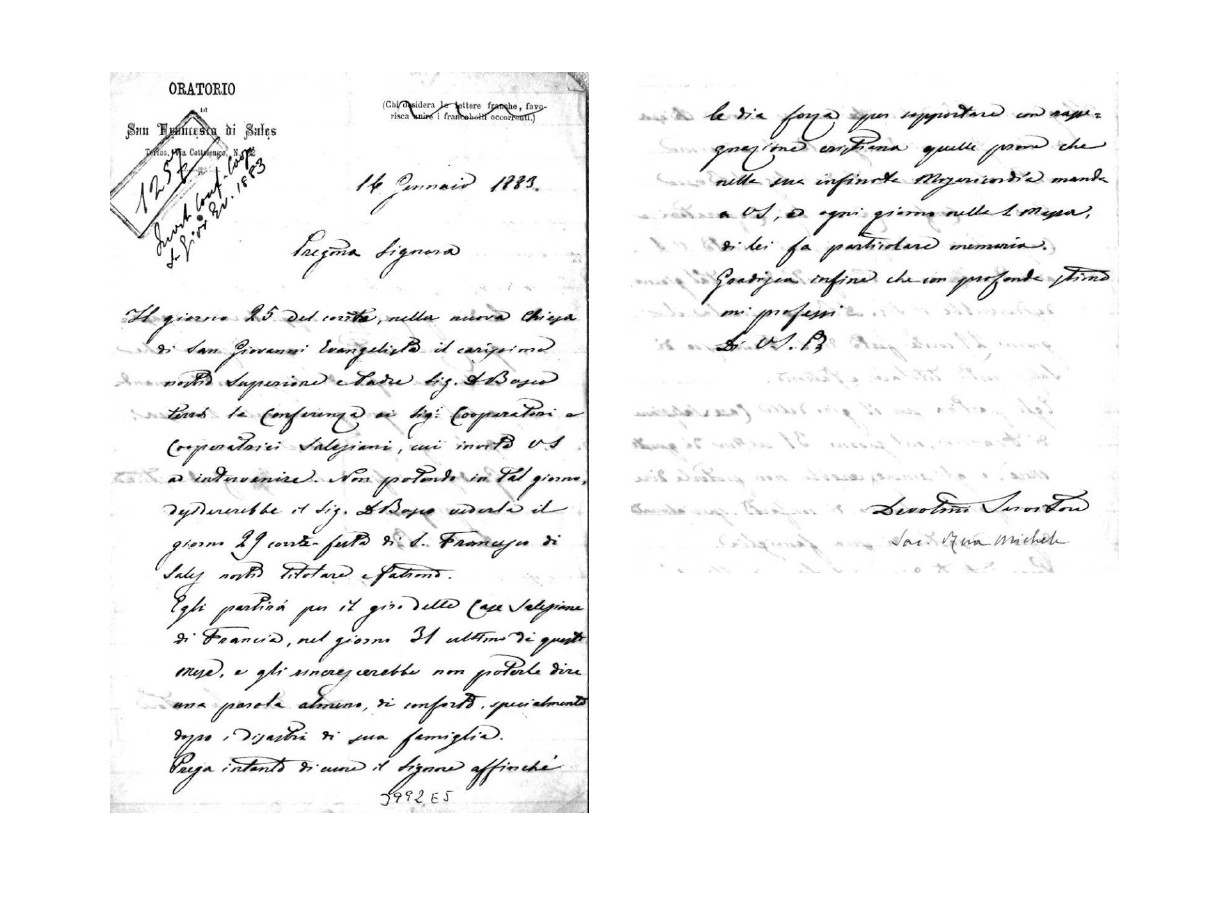 ORATORIO
DI
San Francesco di Sales
Torino, Via Cottolengo, N. 32
(Chi desidera le lettere franche, favo-
risca unire i francobolli occorrenti.)
125
Invit. Conf. Coop.
S. Giov. Ev. 1883
16 Gennaio 1883.
Pregma Signora
Il giorno 25 del corrte, nella nuova Chiesa
di San Giovanni Evangelista il carissimo
nostro Superiore e Padre Sig. D Bosco
terrà la Conferenza ai Sigi Cooperatori e
Cooperatrici Salesiani, cui invita V S
a intervenire. Non potendo in tal giorno,
desidererebbe il Sig. D Bosco vederla il
giorno 29 corrte festa di S. Francesco di
Sales nostro titolare e Patrono.
Egli partirà per il giro delle Case Salesiane
di Francia, nel giorno 31 ultimo di questo
mese, e gli rincrescerebbe non poterle dire
una parola almeno, di conforto, specialmente
dopo i disastri di sua famiglia.
Prega intanto di cuore il Signore affinchè
3992 E5
le dia forza per sopportare con rasse=
gnazione cristiana quelle prove che
nella sua infinita Misericordia manda
a VS, e ogni giorno nella S. Messa,
di lei fa particolare memoria.
Gradisca infine che con profonda stima
mi professi
Di V.S. B
Devotmo Servitore
Sac. Rua Michele